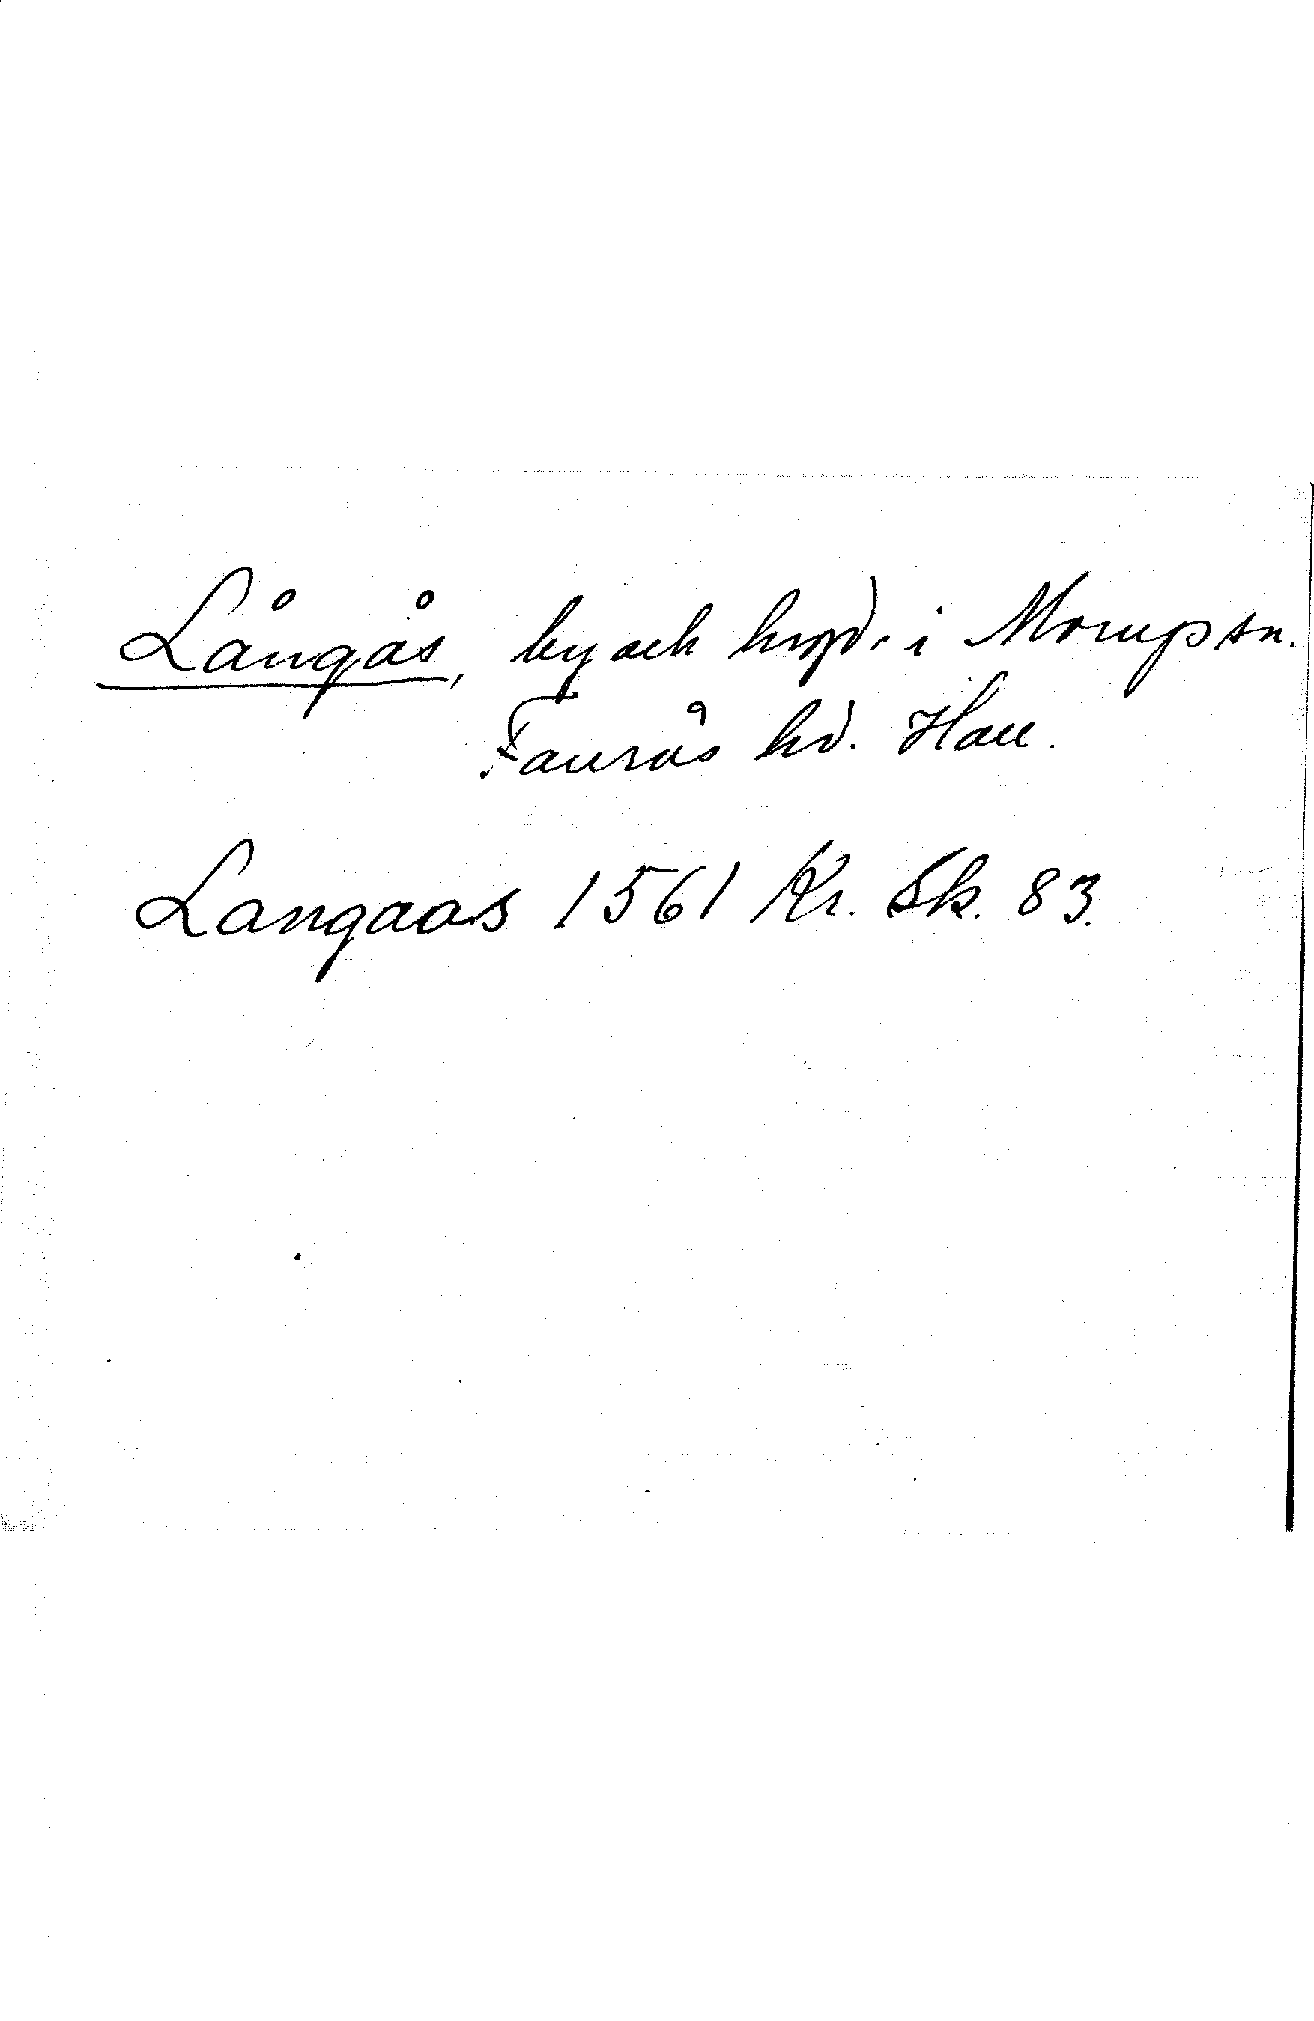 Långås, by och hvpl. i Morup sn.
Faurås hd. Hall.
Langaas 1561 Kr. Sk. 83.